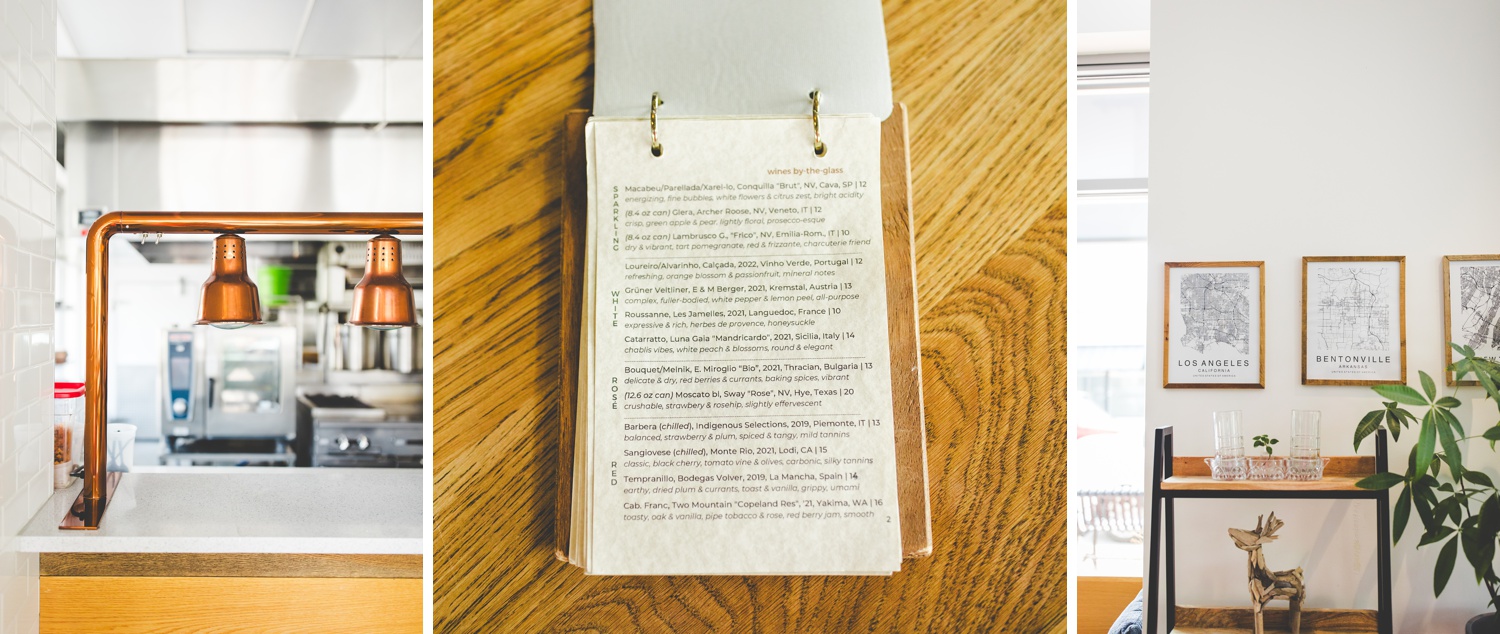 wines by-the-glass
SPARKLING
Macabeu/Parellada/Xarel-lo, Conquilla "Brut", NV, Cava, SP | 12
energizing, fine bubbles, white flowers & citrus zest, bright acidity
(8.4 oz can) Glera, Archer Roose, NV, Veneto, IT | 12
crisp, green apple & pear, lightly floral, prosecco-esque
(8.4 oz can) Lambrusco G., "Frico", NV, Emilia-Rom., IT | 10
dry & vibrant, tart pomegranate, red & frizzante, charcuterie friend
WHITE
Loureiro/Alvarinho, Calçada, 2022, Vinho Verde, Portugal | 12
refreshing, orange blossom & passionfruit, mineral notes
Grüner Veltliner, E & M Berger, 2021, Kremstal, Austria | 13
complex, fuller-bodied, white pepper & lemon peel, all-purpose
Roussanne, Les Jamelles, 2021, Languedoc, France | 10
expressive & rich, herbes de provence, honeysuckle
Catarratto, Luna Gaia "Mandricardo", 2021, Sicilia, Italy | 14
chablis vibes, white peach & blossoms, round & elegant
ROSÉ
Bouquet/Melnik, E. Miroglio "Bio", 2021, Thracian, Bulgaria | 13
delicate & dry, red berries & currants, baking spices, vibrant
(12.6 oz can) Moscato bl, Sway "Rose", NV, Hye, Texas | 20
crushable, strawbery & rosehip, slightly effervescent
RED
Barbera (chilled), Indigenous Selections, 2019, Piemonte, IT | 13
balanced, strawberry & plum, spiced & tangy, mild tannins
Sangiovese (chilled), Monte Rio, 2021, Lodi, CA | 15
classic, black cherry, tomato vine & olives, carbonic, silky tannins
Tempranillo, Bodegas Volver, 2019, La Mancha, Spain | 14
earthy, dried plum & currants, toast & vanilla, grippy, umami
Cab. Franc, Two Mountain "Copeland Res", '21, Yakima, WA | 16
toasty, oak & vanilla, pipe tobacco & rose, red berry jam, smooth
2
LOS ANGELES
CALIFORNIA
BENTONVILLE
ARKANSAS